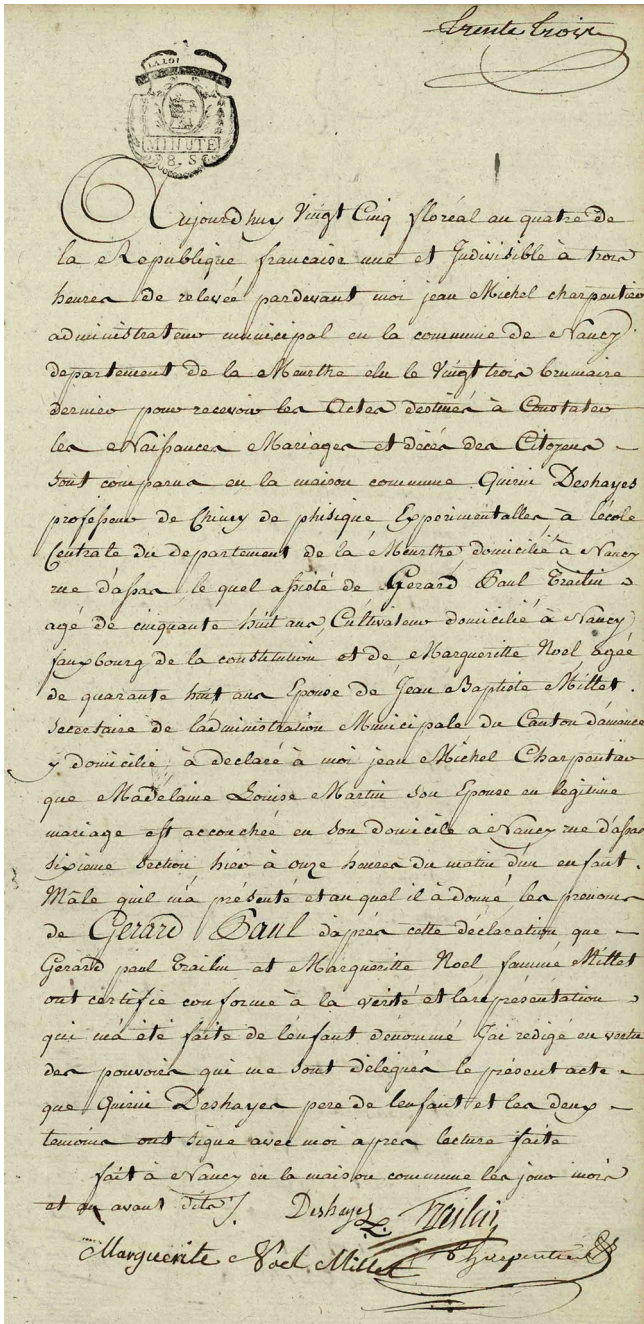 trente trois
LA LOI
MINUTE
8. S
Aujourdhuy Vingt Cinq floréal an quatre de
la Republique francaise une et Indivisible à trois
heures de relevée pardevant moi jean Michel charpentier
administrateur municipal en la commune de Nancy
departement de la Meurthe elu le Vingt trois brumaire
dernier pour recevoir les Actes destinés à Constater
les Naissances Mariages et décès des Citoyens –
sont comparus en la maison commune Quirin Deshayes
professeur de Chimy de phisique Experimentalles à lécole
Centrale du departement de la Meurthe domicilié à Nancy
rue dassas, le quel assisté de Gerard Paul Trailin
agé de cinquante huit ans Cultivateur domicilié à Nancy
fauxbourg de la constitution et de Margueritte Noel agée
de quarante huit ans Epouse de Jean Baptiste Millet.
secertaire de ladministration Municipale du Canton damance
y domicilié, à declaré à moi jean Michel Charpentier
que Madelaine Louise Martin son Epouse en legitime
mariage est accouchée en son domicile à Nancy rue dassas
sixieme section hier à onze heures du matin dun enfant.
Mâle quil m'a présenté et au quel il à donné les prenoms
de Gerard Paul daprés cette déclaration que –
Gerard paul Trailin et Margueritte Noel, fammé Millet
ont certifié conforme à la vérité et la représentation
qui m'a été faite de lénfant dénommé Jai redigé en vertu
des pouvoirs qui me sont délégués le présent acte –
que Quirin Deshayes pere de lenfant et les deux –
temoins ont signé avec moi apres lecture faite
fait à Nancy en la maison commune les jour mois
et an avant dits /. Deshayes Trailin
Marguerite Noel Millet Charpentier